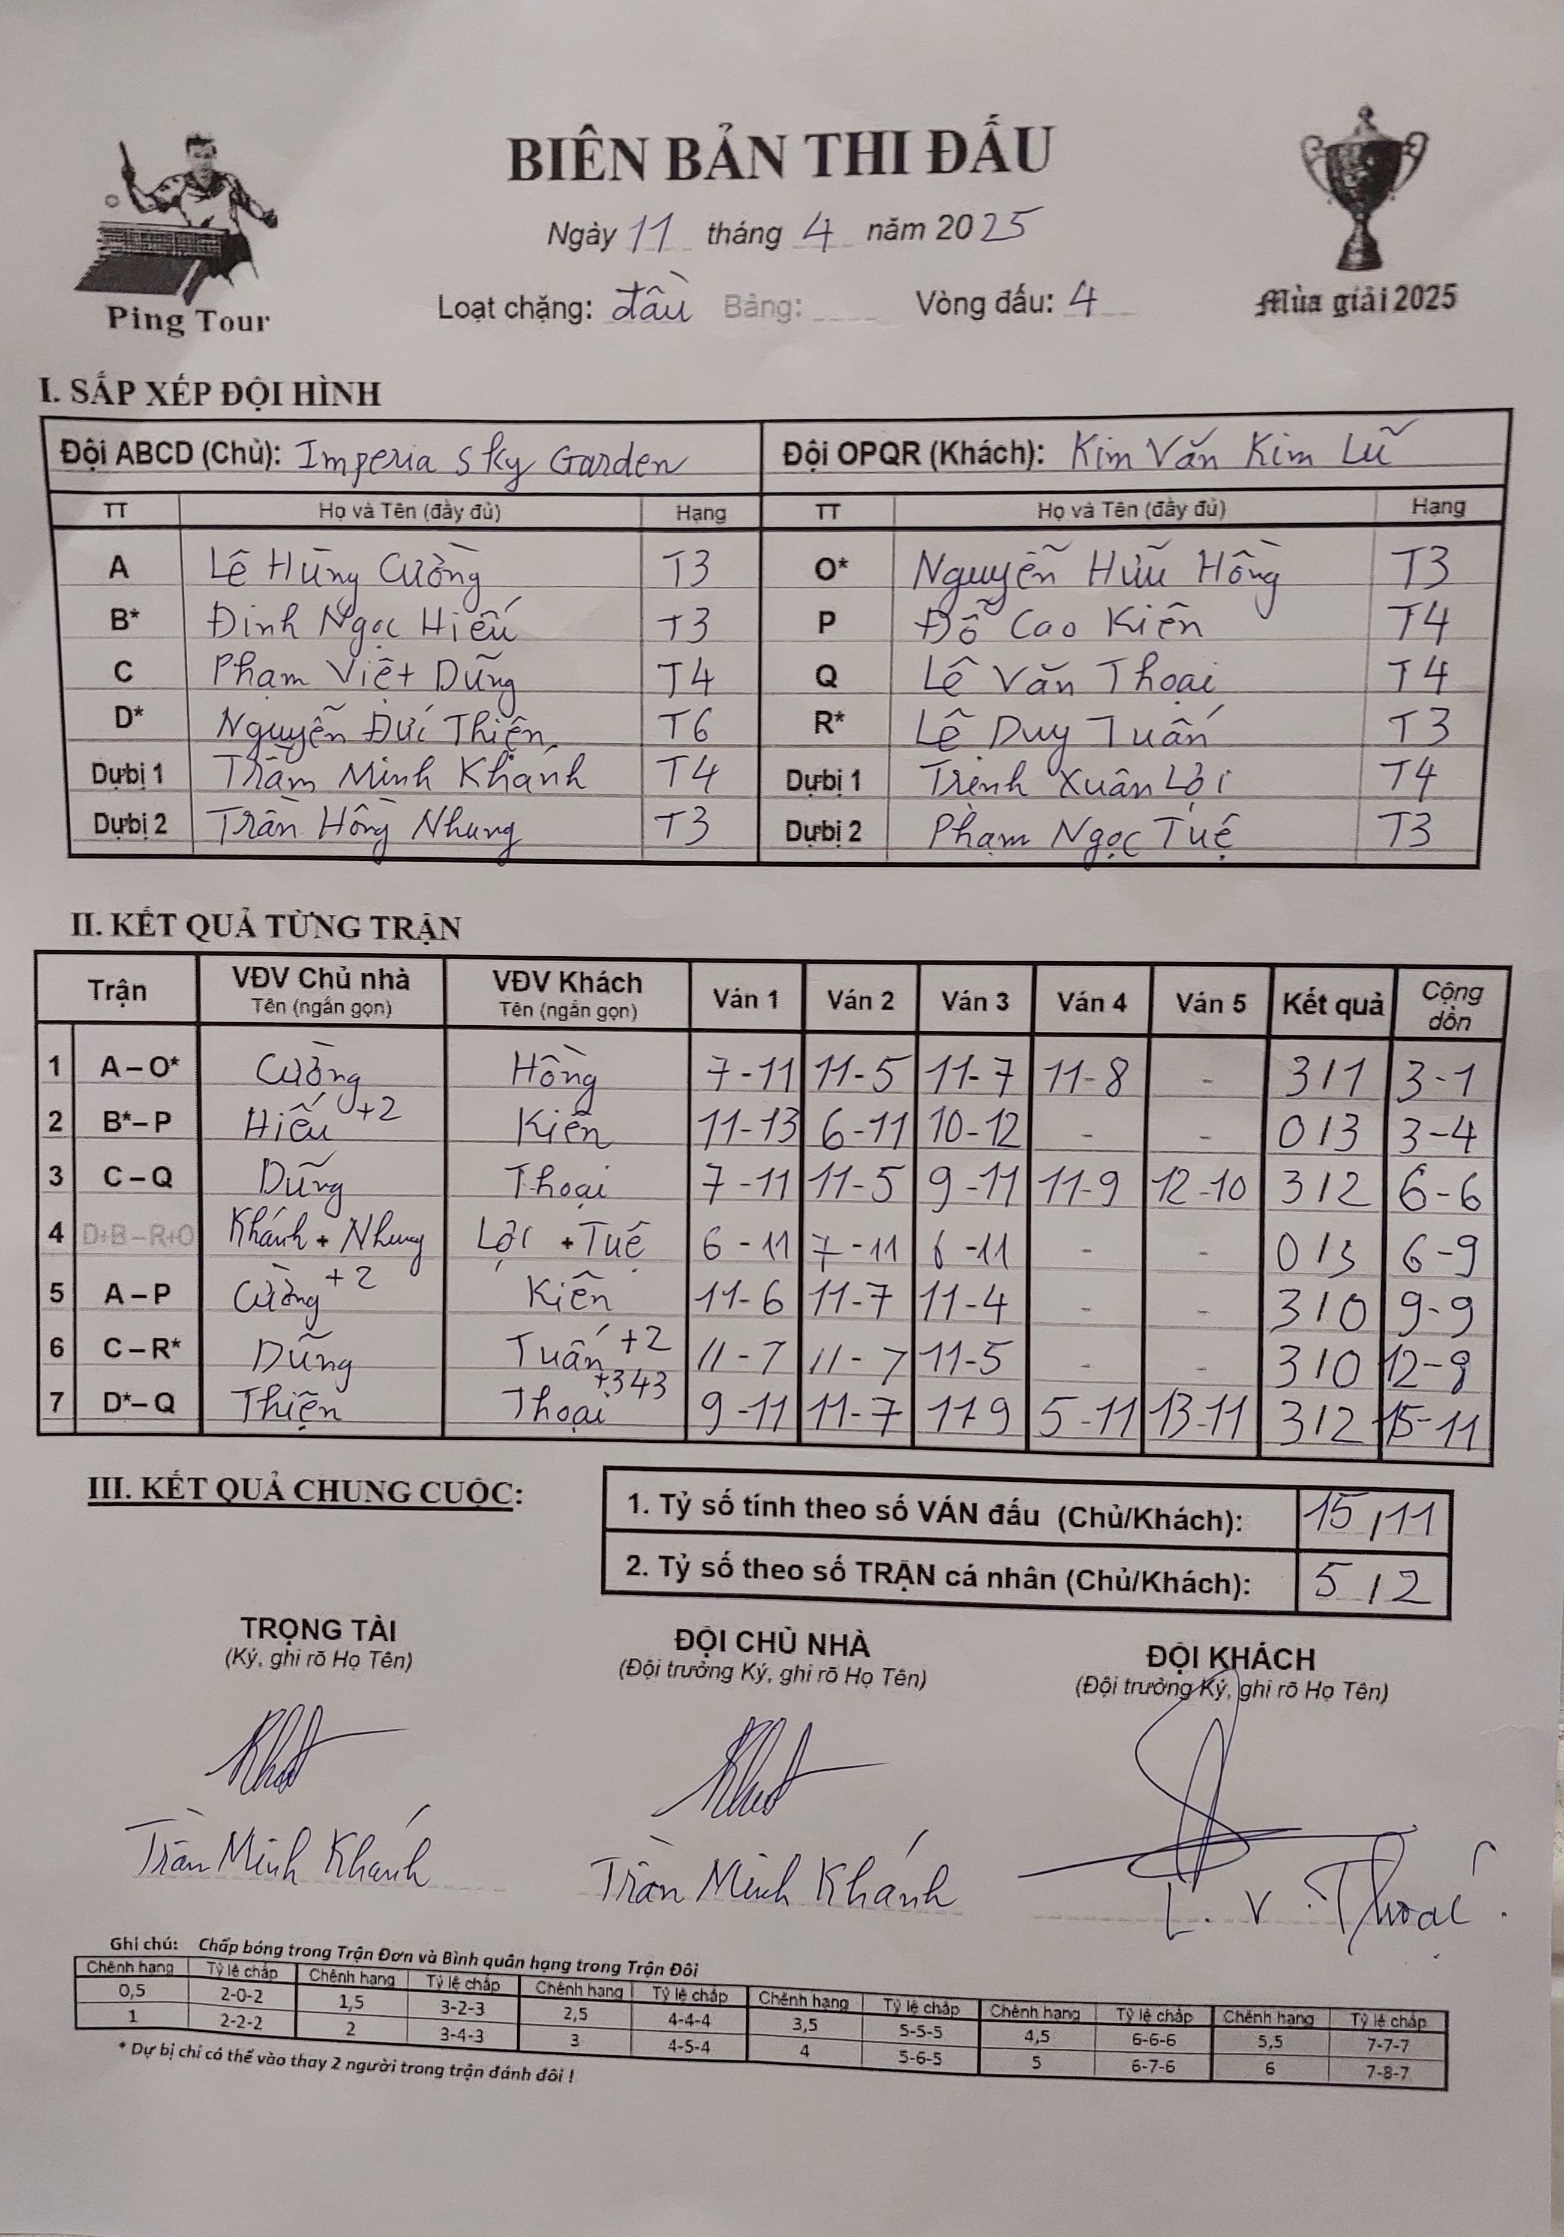 BIÊN BẢN THI ĐẤU
Ngày 11 tháng 4 năm 2025
Ping Tour
Loạt chặng: đầu Bảng: Vòng đấu: 4
Mùa giải 2025
I. SẮP XẾP ĐỘI HÌNH
Đội ABCD (Chủ): Imperia Sky Garden Đội OPQR (Khách): Kim Văn Kim Lũ
TT Họ và Tên (đầy đủ) Hạng TT Họ và Tên (đầy đủ) Hạng
A Lê Hùng Cường T3 O* Nguyễn Hữu Hồng T3
B* Đinh Ngọc Hiếu T3 P Đỗ Cao Kiên T4
C Phạm Việt Dũng T4 Q Lê Văn Thoại T4
D* Nguyễn Đức Thiện T6 R* Lê Duy Tuấn T3
Dự bị 1 Trần Minh Khánh T4 Dự bị 1 Trịnh Xuân Lợi T4
Dự bị 2 Trần Hồng Nhung T3 Dự bị 2 Phạm Ngọc Tuệ T3
II. KẾT QUẢ TỪNG TRẬN
Trận VĐV Chủ nhà Tên (ngắn gọn) VĐV Khách Tên (ngắn gọn) Ván 1 Ván 2 Ván 3 Ván 4 Ván 5 Kết quả Cộng dồn
1 A – O* Cường Hồng 7-11 11-5 11-7 11-8 - 3/1 3-1
2 B* – P Hiếu +2 Kiên 11-13 6-11 10-12 - - 0/3 3-4
3 C – Q Dũng Thoại 7-11 11-5 9-11 11-9 12-10 3/2 6-6
4 D+B – R+O Khánh + Nhung Lợi + Tuệ 6-11 7-11 6-11 - - 0/3 6-9
5 A – P Cường +2 Kiên 11-6 11-7 11-4 - - 3/0 9-9
6 C – R* Dũng Tuấn +2 11-7 11-7 11-5 - - 3/0 12-9
7 D* – Q Thiện Thoại +343 9-11 11-7 11-9 5-11 13-11 3/2 15-11
III. KẾT QUẢ CHUNG CUỘC:
1. Tỷ số tính theo số VÁN đấu (Chủ/Khách): 15/11
2. Tỷ số theo số TRẬN cá nhân (Chủ/Khách): 5/2
TRỌNG TÀI ĐỘI CHỦ NHÀ ĐỘI KHÁCH
(Ký, ghi rõ Họ Tên) (Đội trưởng Ký, ghi rõ Họ Tên) (Đội trưởng Ký, ghi rõ Họ Tên)
Trần Minh Khánh Trần Minh Khánh L. V. Thoại
Ghi chú: Chấp bóng trong Trận Đơn và Bình quân hạng trong Trận Đôi
Chênh hạng Tỷ lệ chấp Chênh hạng Tỷ lệ chấp Chênh hạng Tỷ lệ chấp Chênh hạng Tỷ lệ chấp Chênh hạng Tỷ lệ chấp Chênh hạng Tỷ lệ chấp
0,5 2-0-2 1,5 3-2-3 2,5 4-4-4 3,5 5-5-5 4,5 6-6-6 5,5 7-7-7
1 2-2-2 2 3-4-3 3 4-5-4 4 5-6-5 5 6-7-6 6 7-8-7
* Dự bị chỉ có thể vào thay 2 người trong trận đánh đôi !